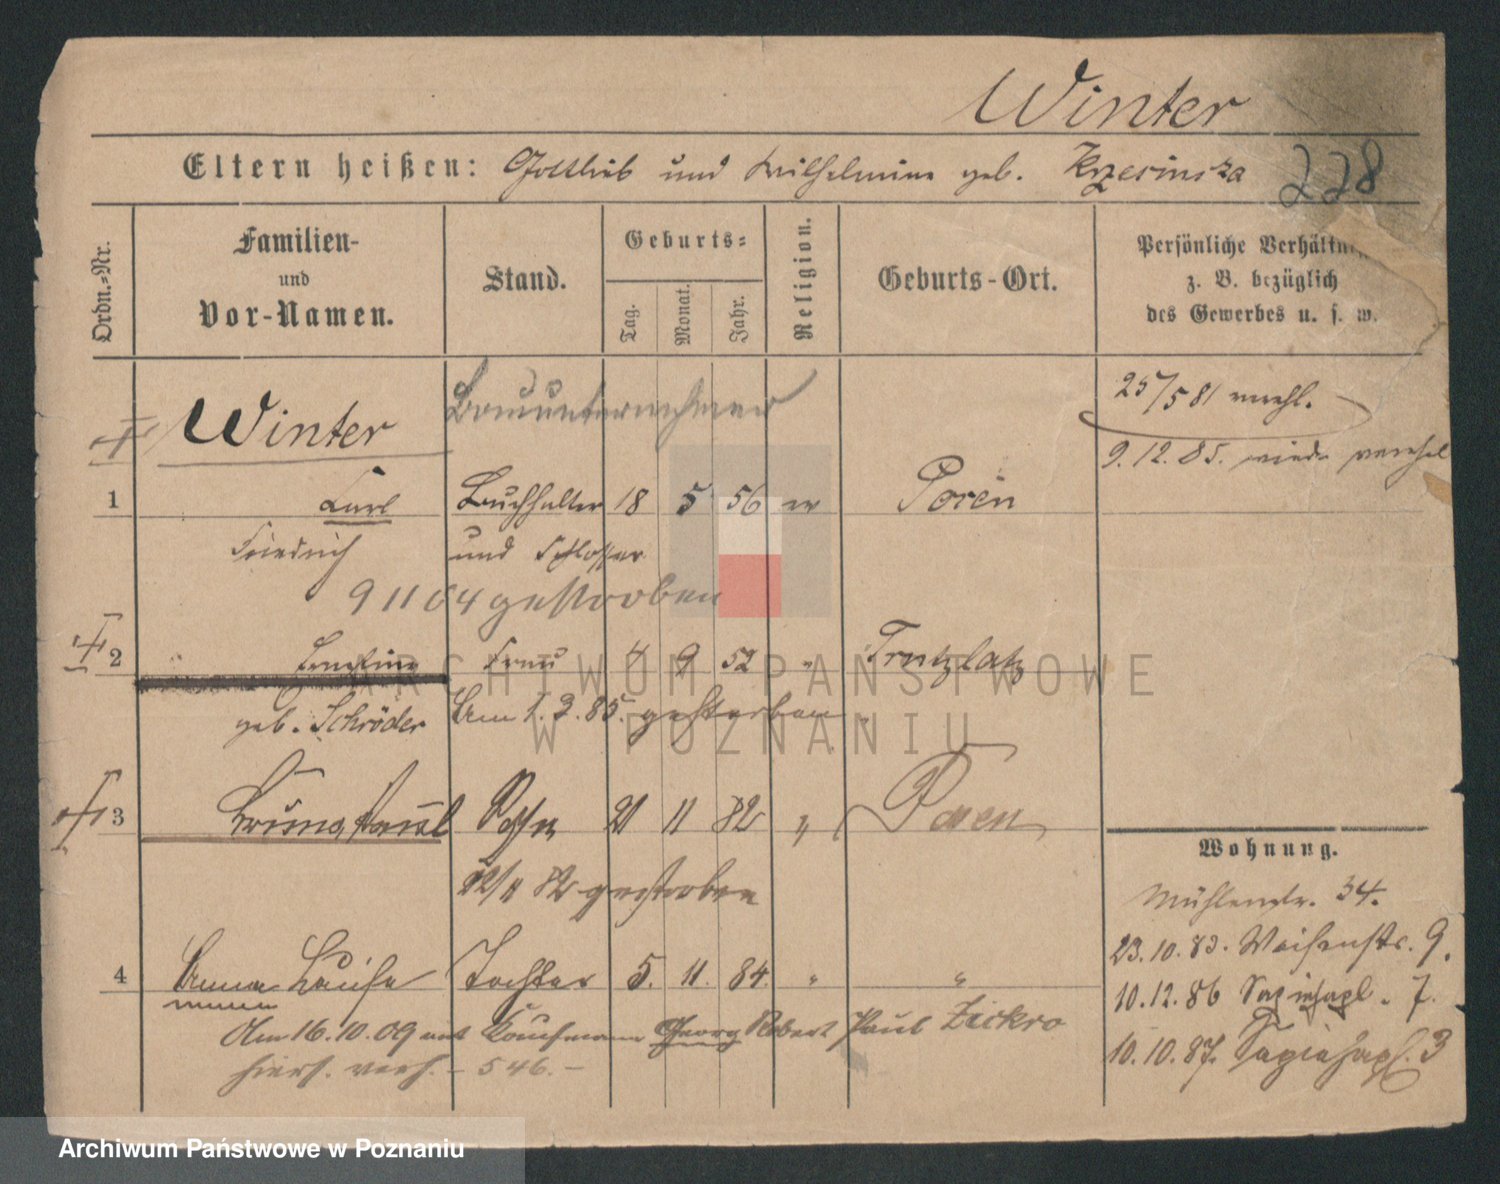 Winter
Eltern heißen: Gottlieb und Wilhelmine geb. Krzesinska 228
Ordn.-Nr.
Familien-
und
Vor-Namen.
Stand.
Geburts-
Tag.
Monat.
Jahr.
Religion.
Geburts-Ort.
Persönliche Verhältn
z. B. bezüglich
des Gewerbes u. s. w.
Winter Bauunternehmer
25/5 81 verehl.
9.12.85. wieder verehel
1 Carl Buchhalter 18 5 56 ev Posen
Friedrich und Schlosser
9 11 04 gestorben
2 Ernestine Frau 4 9 52 "
geb. Schröder Am 1.3.85. gestorben
3 Bruno Paul Sohn 21 11 82 " Posen
22/11 82 gestorben
Wohnung.
Mühlenstr. 34.
23.10.83. Waisenstr. 9.
10.12.86 Sapiehapl. 7.
10.10.87. Sapiehapl. 3
4 Anna Luise Tochter 5. 11. 84. " "
Am 16.10.09 mit Kaufmann Georg Robert Paul Zickro
hiers. verh. – 546. –
ARCHIWUM PAŃSTWOWE
W POZNANIU
Archiwum Państwowe w Poznaniu